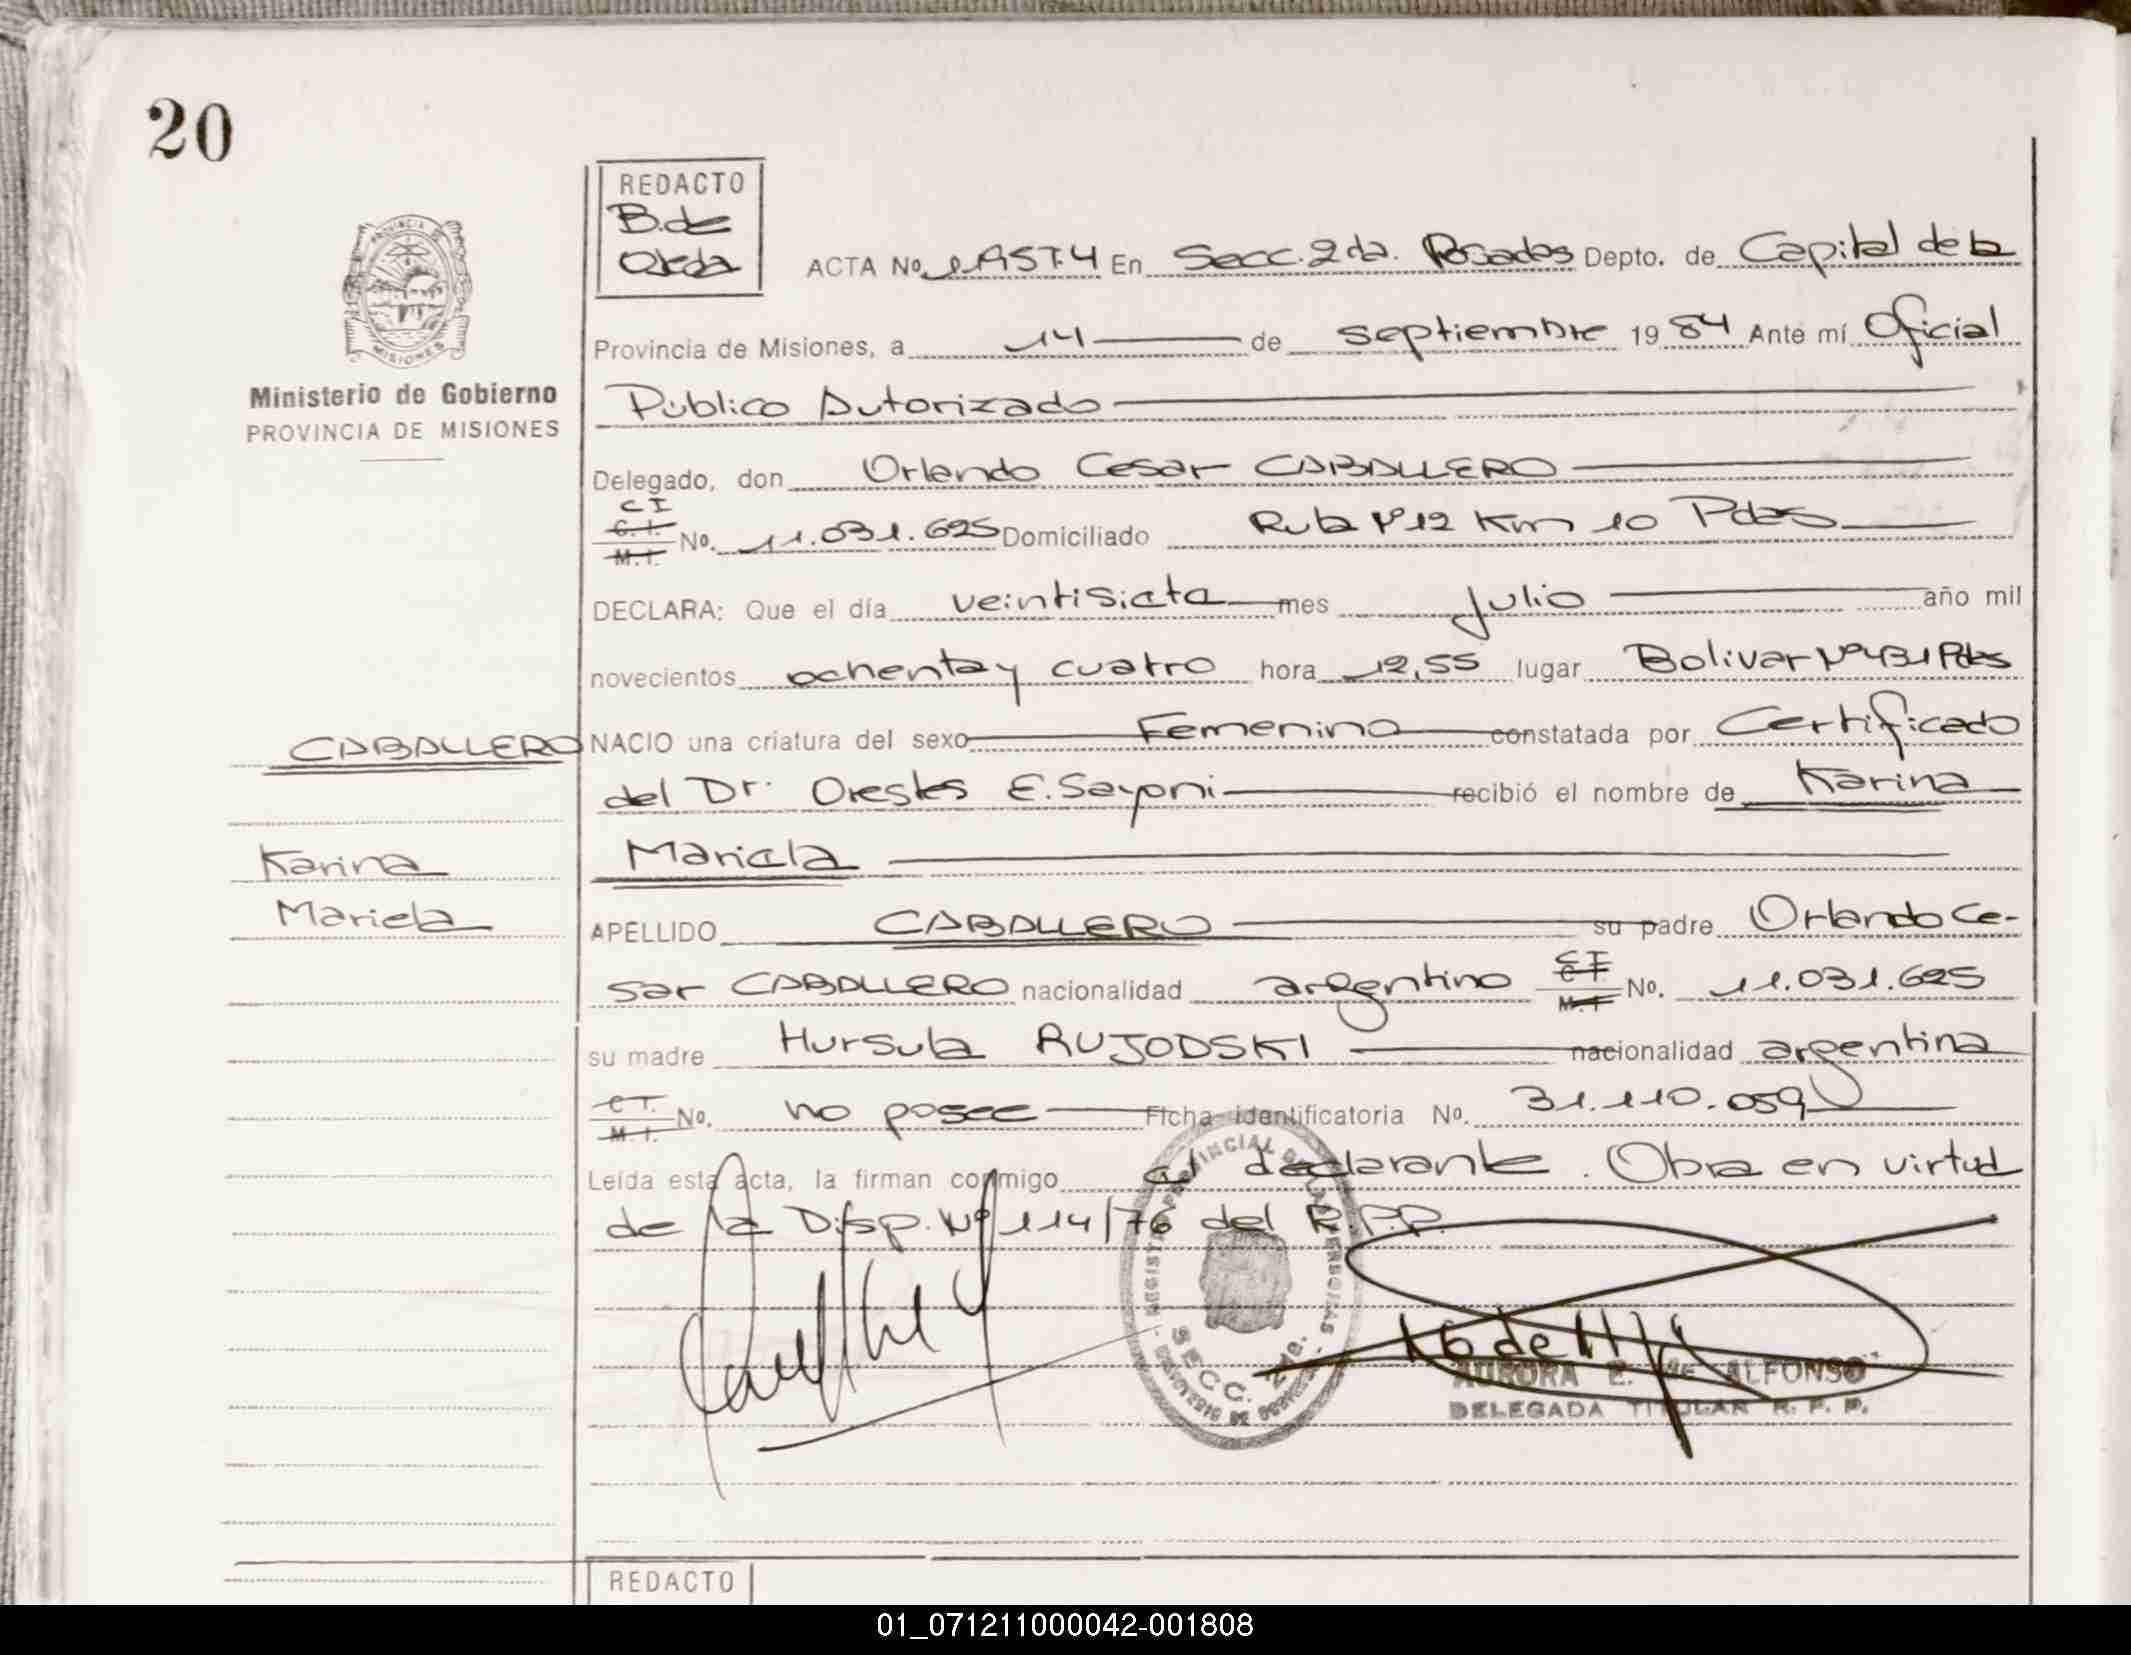 20
REDACTO
B. de
Ojeda
ACTA No. 1957.4 En Secc. 2da. Posadas Depto. de Capital de la
Provincia de Misiones, a 14 de septiembre 1984 Ante mí Oficial
Público Autorizado
Ministerio de Gobierno
PROVINCIA DE MISIONES
Delegado, don Orlando Cesar CABALLERO
CI
C.I.
M.I. No. 11.031.625 Domiciliado Ruta Nº 12 Km 10 Pdas
DECLARA: Que el día veintisiete mes julio año mil
novecientos ochenta y cuatro hora 12,55 lugar Bolivar Nº 431 Pdas
CABALLERO NACIO una criatura del sexo Femenino constatada por Certificado
del Dr. Orestes E. Sayoni recibió el nombre de Karina
Karina
Mariela
Mariela
APELLIDO CABALLERO su padre Orlando Ce-
sar CABALLERO nacionalidad argentino CI M.I. No. 11.031.625
su madre Hursula RUJODSKI nacionalidad argentina
C.I.
M.I. No. no posee Ficha identificatoria No. 31.110.059
Leída esta acta, la firman conmigo el declarante. Obra en virtud
de la Disp. Nº 114/76 del R.P.P.
SECC. 2da.
AURORA E. de ALFONSO
DELEGADA TITULAR R. P. P.
REDACTO
01_071211000042-001808